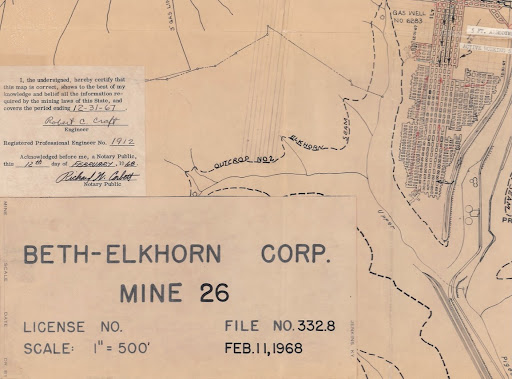 GAS WELL
NO 6283
I, the undersigned, hereby certify that
this map is correct, shows to the best of my
knowledge and belief all the information re-
quired by the mining laws of this State, and
covers the period ending 12-31-67.
Robert C. Craft
Engineer
Registered Professional Engineer No. 1912
Acknowledged before me, a Notary Public,
this 12th day of FEBRUARY, 1968
Richard W. Corbett
Notary Public
OUTCROP NO2 ELKHORN SEAM
BETH-ELKHORN CORP.
MINE 26
LICENSE NO. FILE NO. 332.8
SCALE: 1" = 500' FEB. 11, 1968